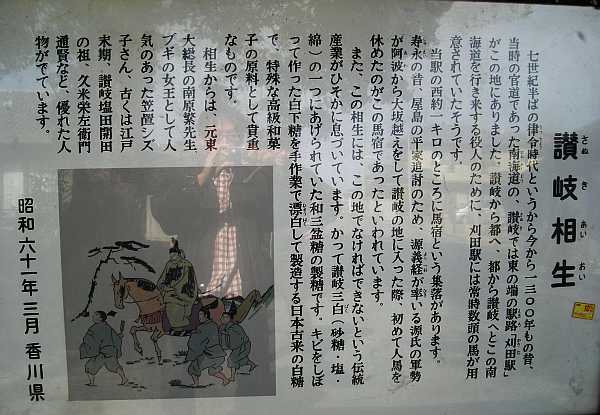 讃岐相生
さぬきあいおい
七世紀半ばの律令時代というから今から一三〇〇年もの昔、
当時の官道であった南海道の、讃岐では東の端の駅路「刈田駅」
がこの地にありました。讃岐から都へ、都から讃岐へとこの南
海道を行き来する役人のために、刈田駅には常時数頭の馬が用
意されていたそうです。
当駅の西約一キロのところに馬宿という集落があります。
寿永の昔、屋島の平家追討のため、源義経が率いる源氏の軍勢
が阿波から大坂越えをして讃岐の地に入った際、初めて人馬を
休めたのがこの馬宿であったといわれています。
また、この相生には、この地でなければできないという伝統
産業がひそかに息づいています。かつて讃岐三白(砂糖・塩・
綿)の一つにあげられていた和三盆糖の製糖です。キビをしぼ
って作った白下糖を手作業で漂白して製造する日本古来の白糖
で、特殊な高級和菓
子の原料として貴重
なものです。
相生からは、元東
大総長の南原繁先生、
ブギの女王として人
気のあった笠置シズ
子さん、古くは江戸
末期、讃岐塩田開田
の祖、久米栄左衛門
通賢など、優れた人
物がでています。
昭和六十一年三月 香川県